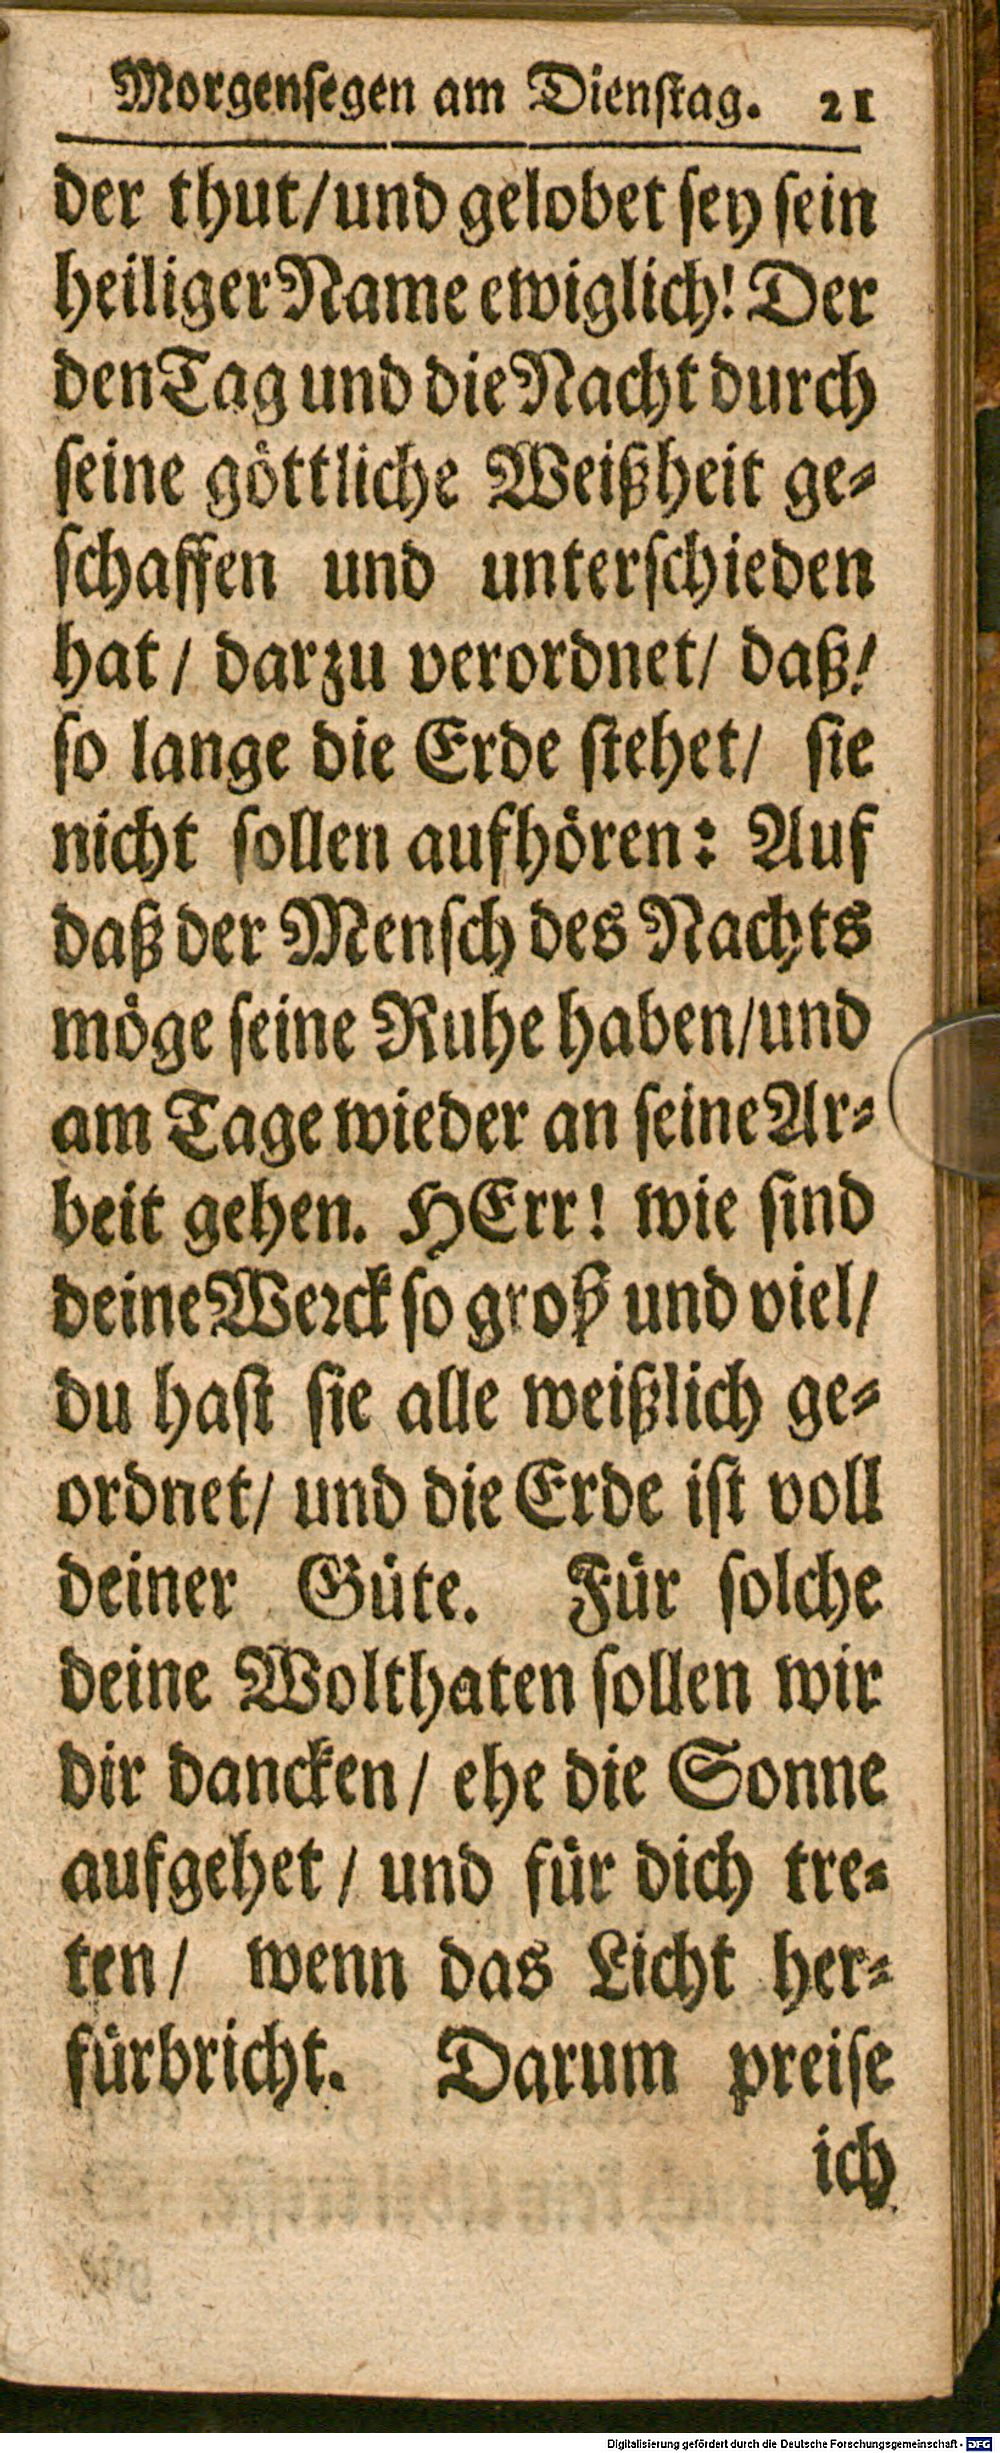 Morgensegen am Dienstag. 21
der thut/und gelobet sey sein
heiliger Name ewiglich! Der
den Tag und die Nacht durch
seine göttliche Weißheit ge-
schaffen und unterschieden
hat / darzu verordnet/ daß/
so lange die Erde stehet/ sie
nicht sollen aufhören: Auf
daß der Mensch des Nachts
möge seine Ruhe haben/und
am Tage wieder an seine Ar-
beit gehen. HErr! wie sind
deine Werck so groß und viel/
du hast sie alle weißlich ge-
ordnet/ und die Erde ist voll
deiner Güte. Für solche
deine Wolthaten sollen wir
dir dancken / ehe die Sonne
aufgehet / und für dich tre-
ten/ wenn das Licht her-
fürbricht. Darum preise
ich
Digitalisierung gefördert durch die Deutsche Forschungsgemeinschaft - DFG